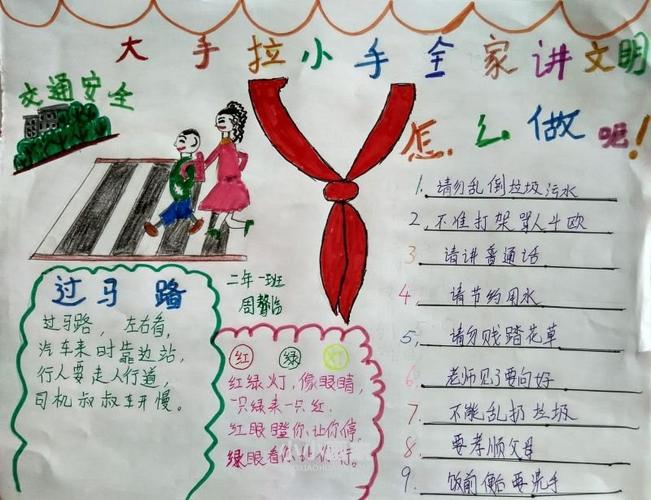 大手拉小手全家讲文明
交通安全
怎么做呢!
1. 请勿乱倒垃圾污水
2、不准打架骂人斗欧
3. 请讲普通话
4. 请节约用水
5, 请勿贱踏花草
6. 老师见了要向好
7. 不能乱扔垃圾
8. 要孝顺父母
9. 饭前便后要洗手
二年一班
过马路
过马路，左右看，
汽车来时靠边站，
行人要走人行道，
司机叔叔车开慢。
红 绿 灯
红绿灯，像眼睛，
一只绿来一只红。
红眼瞪你让你停，
绿眼看你让你行。